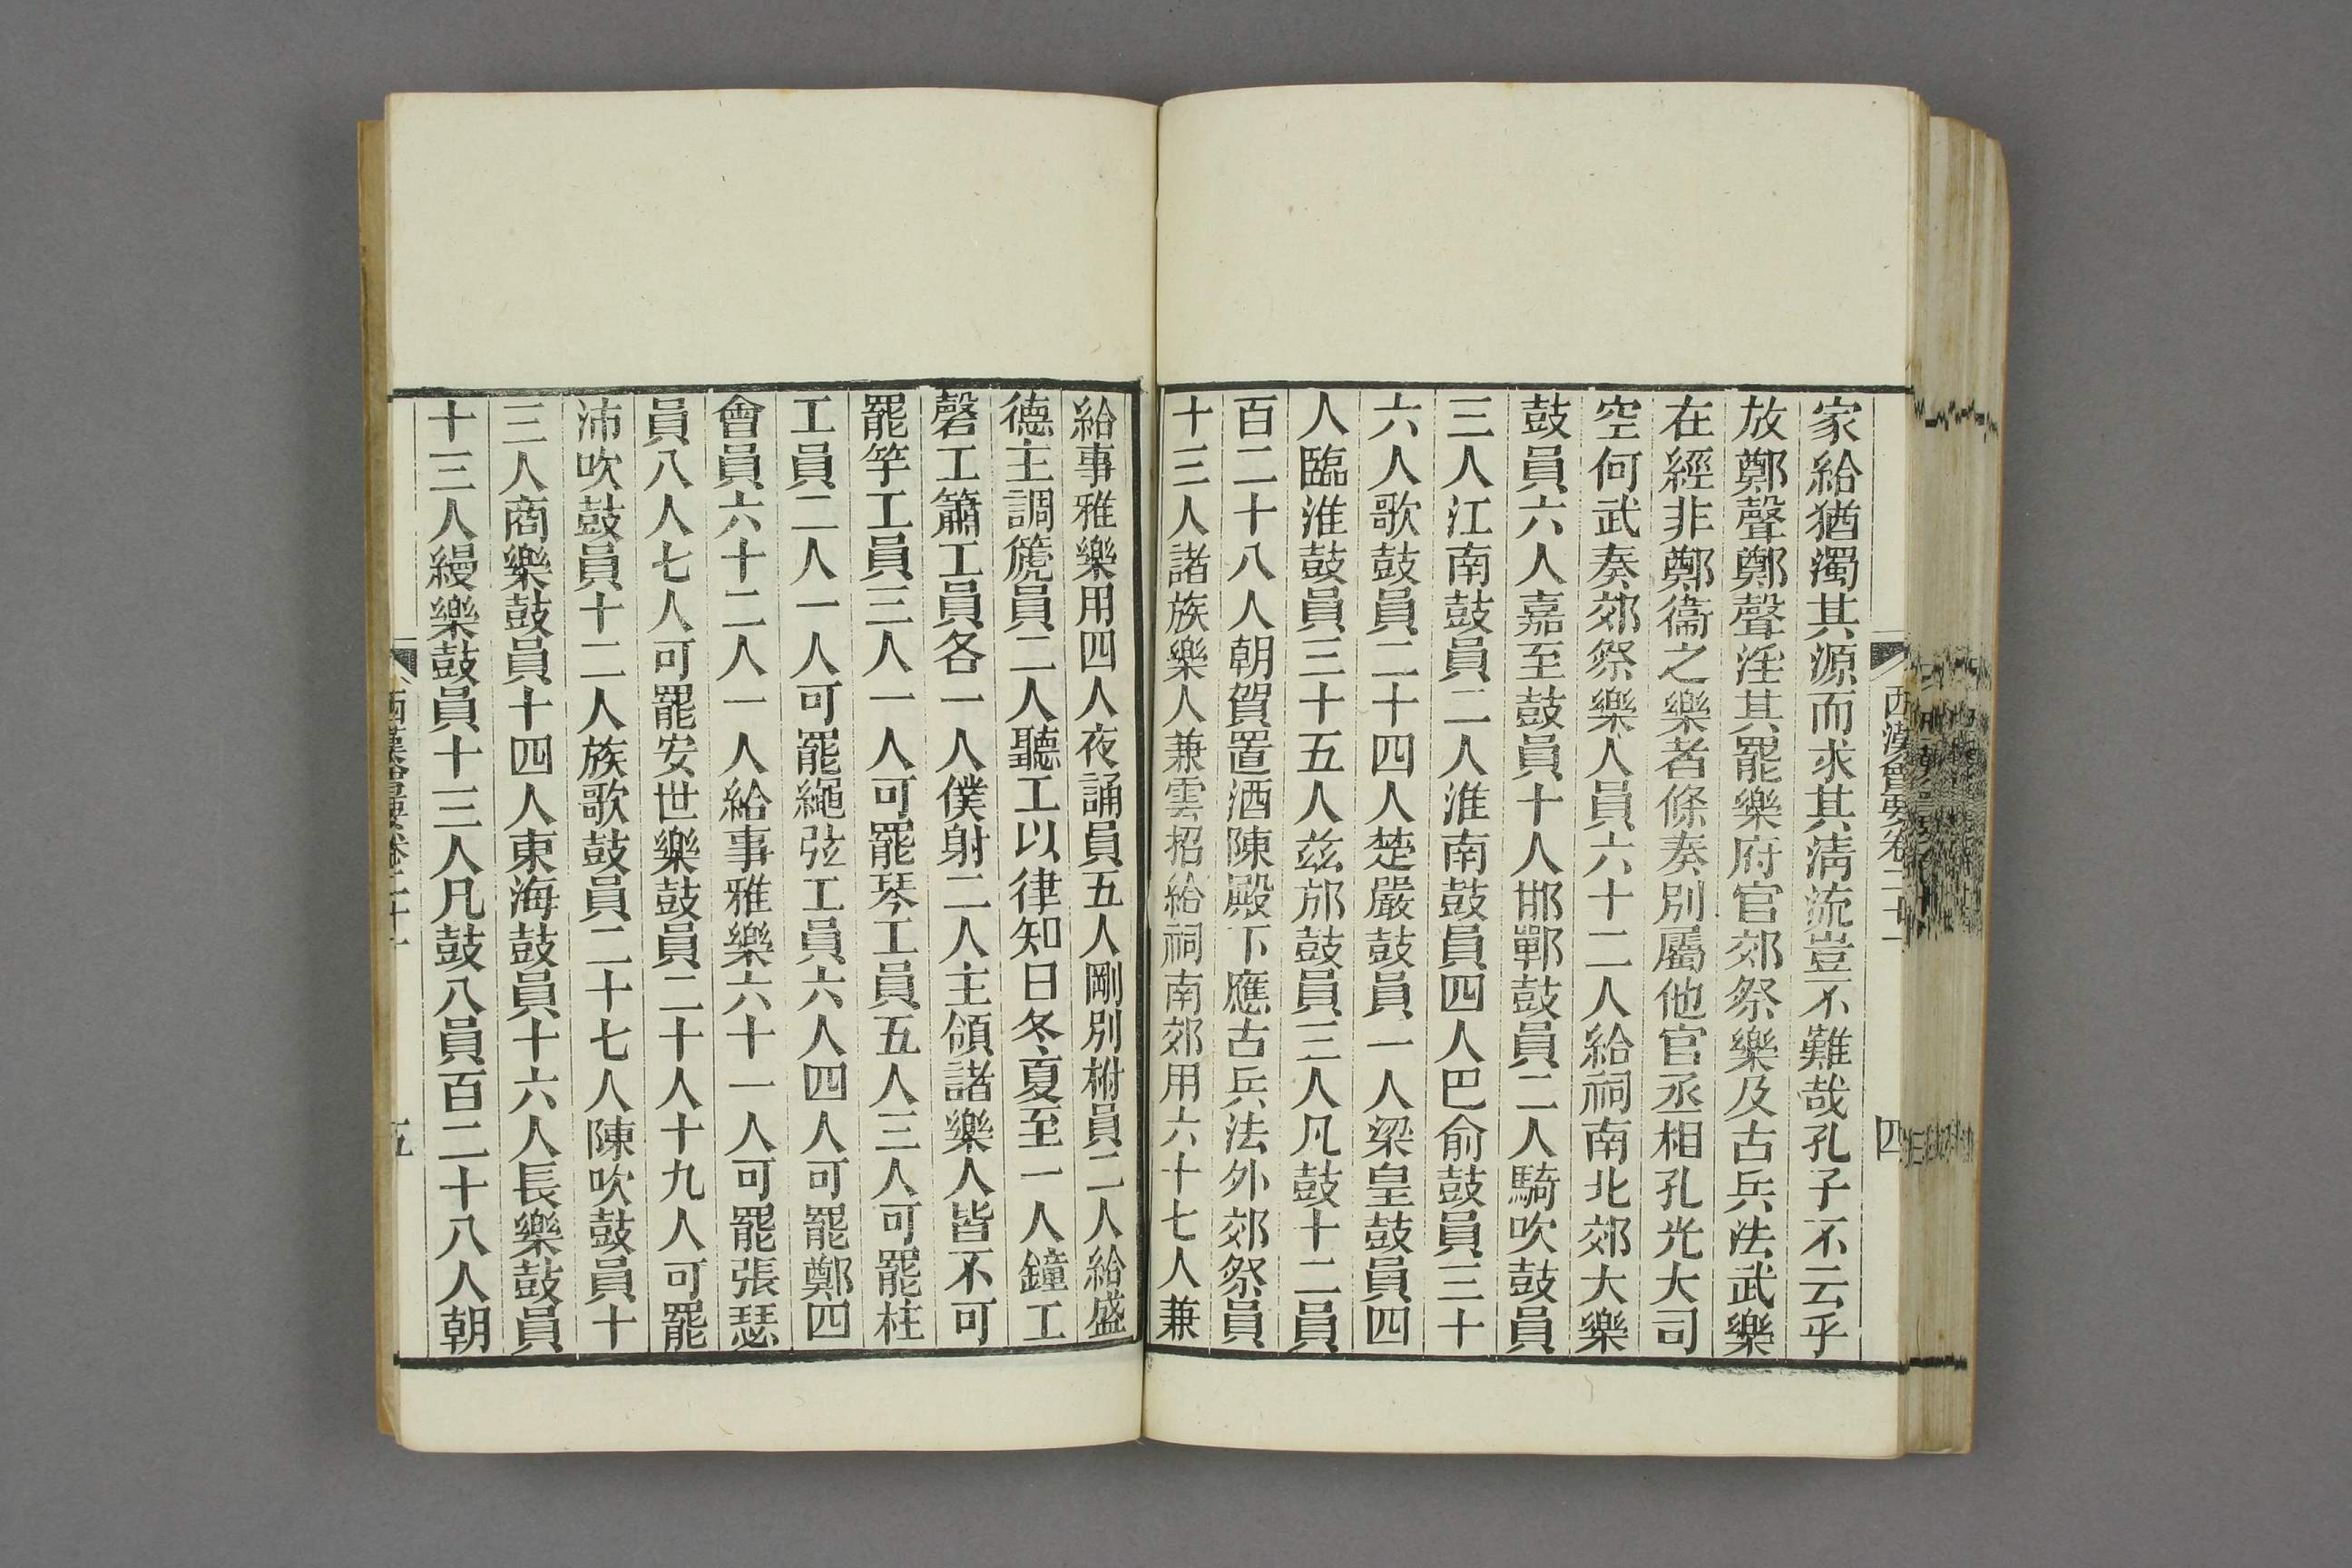 西漢會要卷二十一
四
家給猶濁其源而求其淸流豈不難哉孔子不云乎
放鄭聲鄭聲淫其罷樂府官郊祭樂及古兵法武樂
在經非鄭衞之樂者條奏別屬他官丞相孔光大司
空何武奏郊祭樂人員六十二人給祠南北郊大樂
鼓員六人嘉至鼓員十人邯鄲鼓員二人騎吹鼓員
三人江南鼓員二人淮南鼓員四人巴俞鼓員三十
六人歌鼓員二十四人楚嚴鼓員一人梁皇鼓員四
人臨淮鼓員三十五人玆邡鼓員三人凡鼓十二員
百二十八人朝賀置酒陳殿下應古兵法外郊祭員
十三人諸族樂人兼雲招給祠南郊用六十七人兼
給事雅樂用四人夜誦員五人剛別柎員二人給盛
德主調箎員二人聽工以律知日冬夏至一人鐘工
磬工簫工員各一人僕射二人主領諸樂人皆不可
罷竽工員三人一人可罷琴工員五人三人可罷柱
工員二人一人可罷繩弦工員六人四人可罷鄭四
會員六十二人一人給事雅樂六十一人可罷張瑟
員八人七人可罷安世樂鼓員二十人十九人可罷
沛吹鼓員十二人族歌鼓員二十七人陳吹鼓員十
三人商樂鼓員十四人東海鼓員十六人長樂鼓員
十三人縵樂鼓員十三人凡鼓八員百二十八人朝
西漢會要卷二十一
五